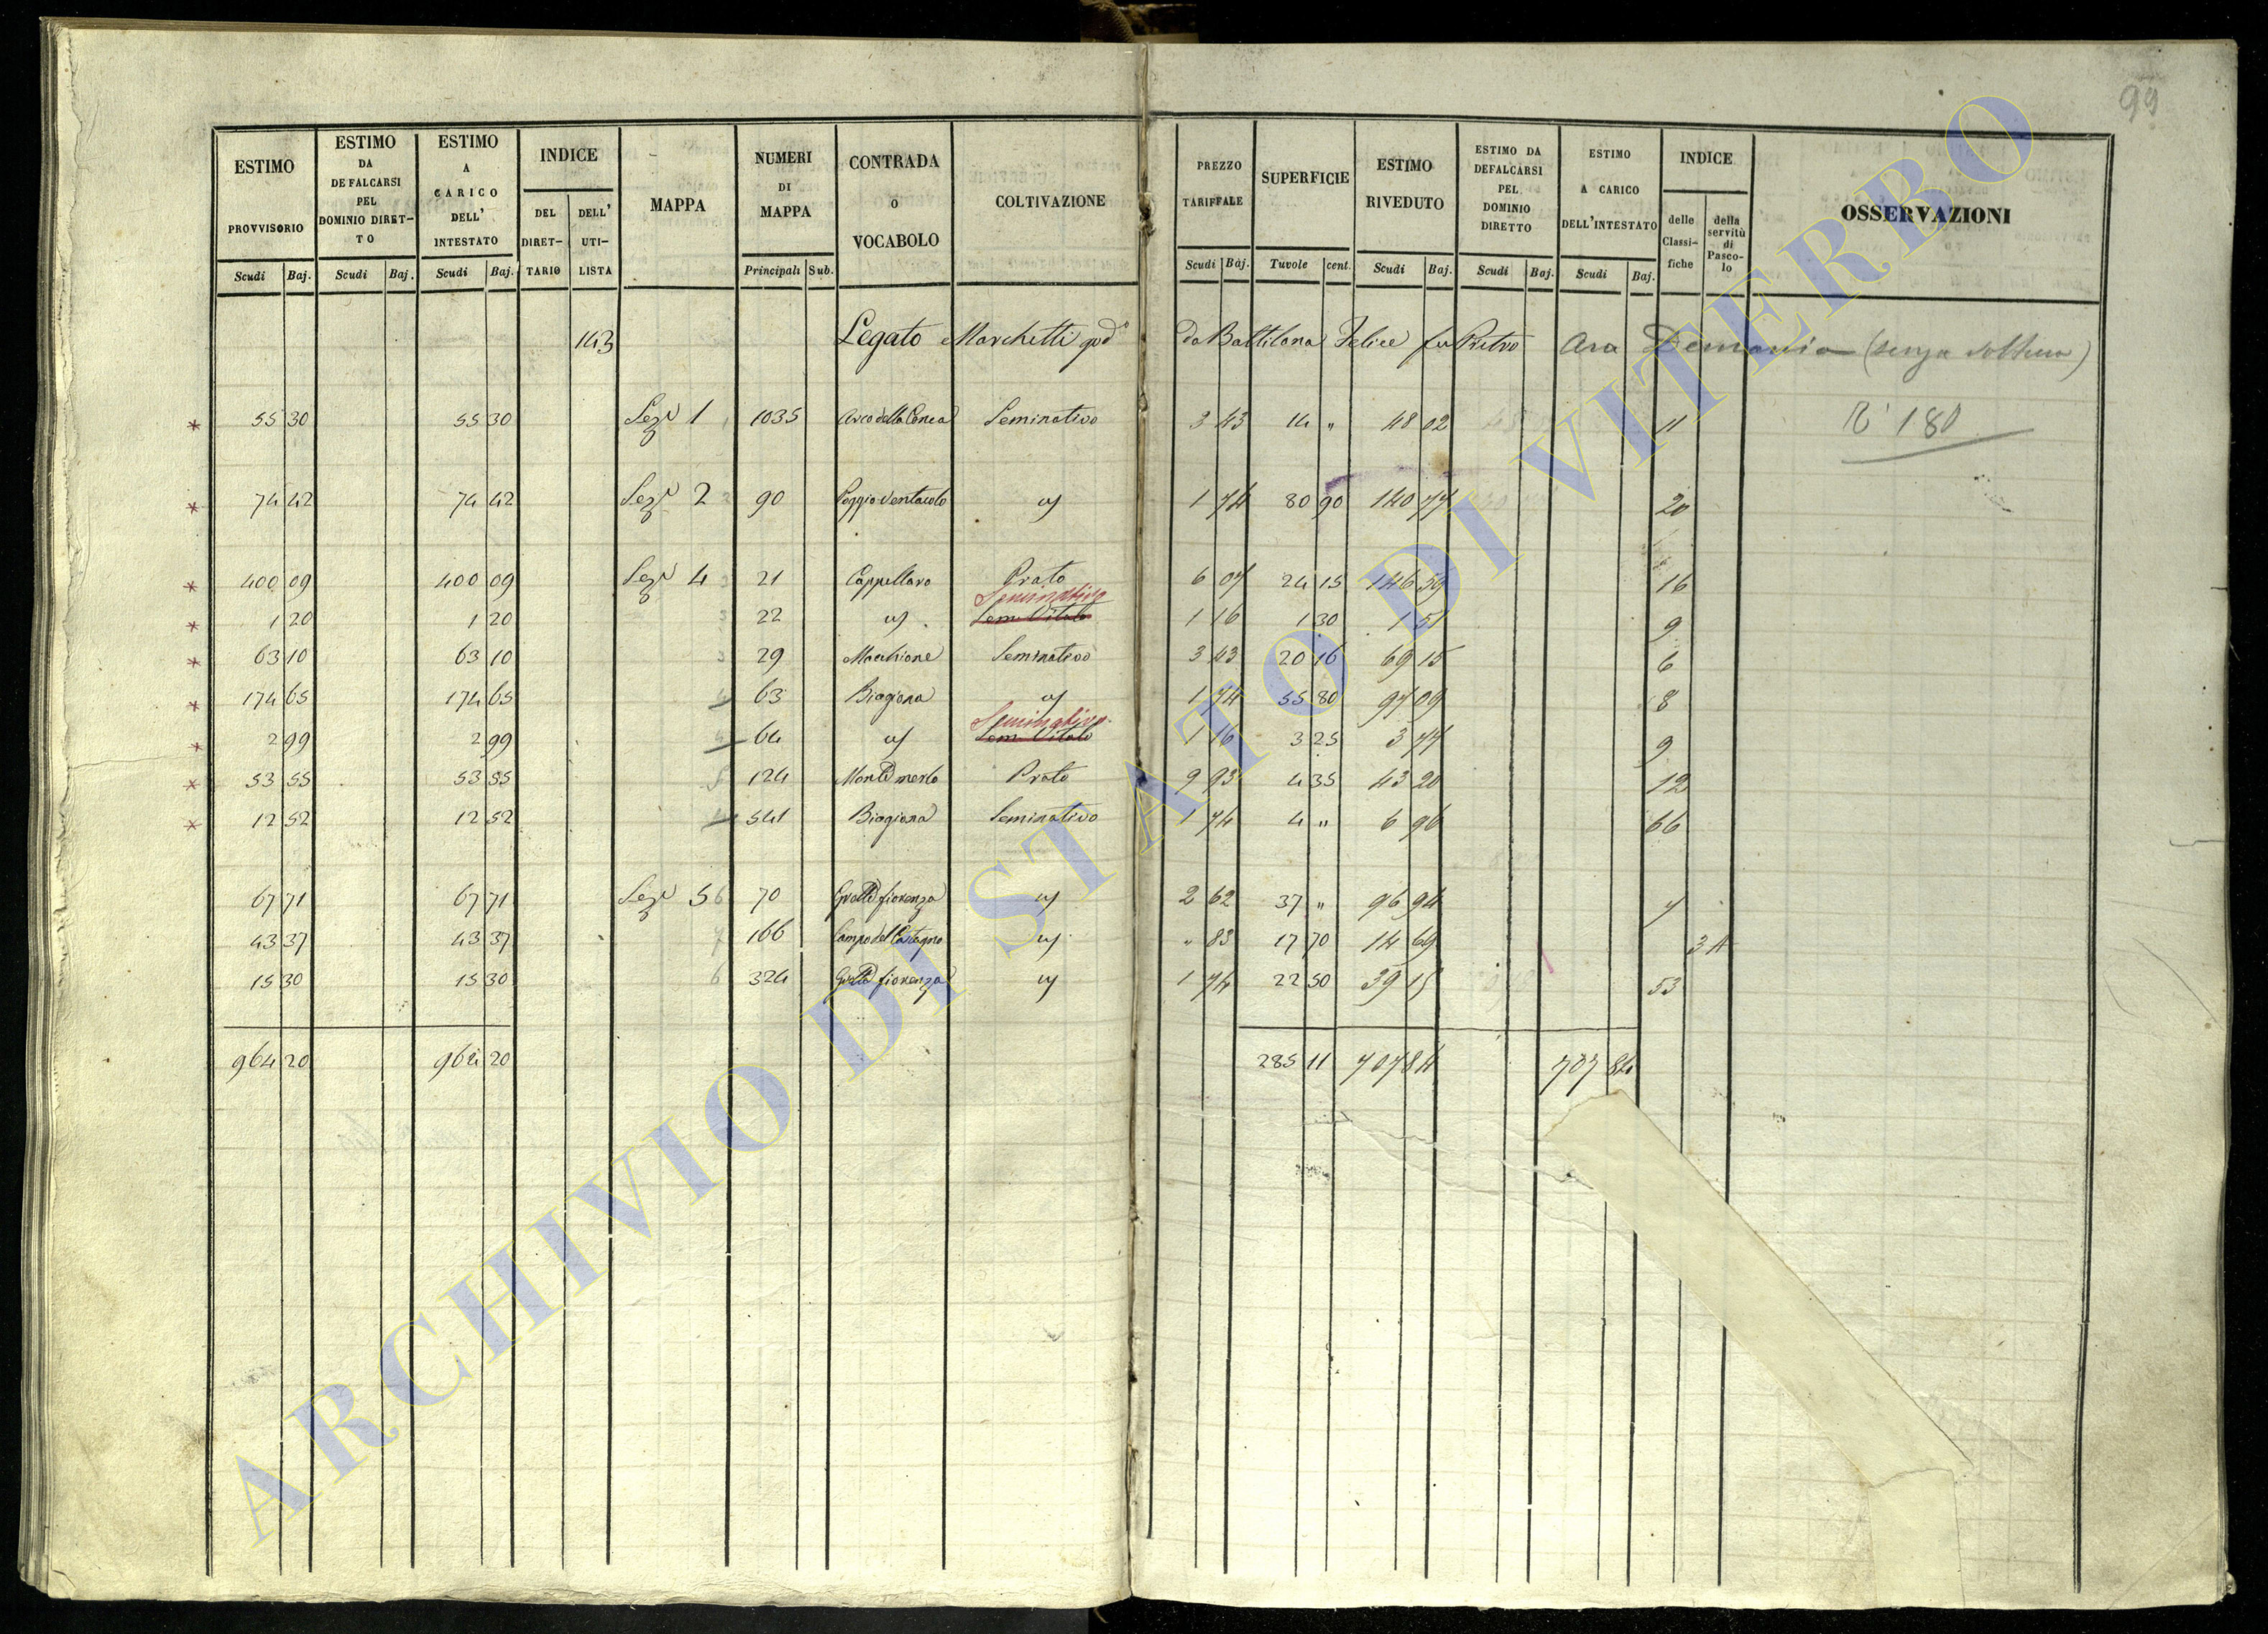 99
ESTIMO PROVVISORIO Scudi Baj.
ESTIMO DA DEFALCARSI PEL DOMINIO DIRET-TO Scudi Baj.
ESTIMO A CARICO DELL' INTESTATO Scudi Baj.
INDICE DEL DIRET-TARIO DELL' UTI-LISTA
MAPPA
NUMERI DI MAPPA Principali Sub.
CONTRADA O VOCABOLO
COLTIVAZIONE
PREZZO TARIFFALE Scudi Baj.
SUPERFICIE Tavole cent.
ESTIMO RIVEDUTO Scudi Baj.
ESTIMO DA DEFALCARSI PEL DOMINIO DIRETTO Scudi Baj.
ESTIMO A CARICO DELL'INTESTATO Scudi Baj.
INDICE delle Classi-fiche della servitù di Pasco-lo
OSSERVAZIONI
143 Legato Marchetti god° da Battilana Felice fu Pietro Ora Demanio (senza voltura)
55 30 55 30 Sez° 1 1035 Arco della Conca Seminativo 3 43 14 " 48 02 11 180
74 42 74 42 Sez° 2 90 Poggio Ventacolo 1 74 80 90 140 77 20
400 09 400 09 Sez° 4 21 Cappellaro Prato 6 07 24 15 146 59 16
Seminativo
1 20 1 20 22 Sem Vitato 1 16 1 30 1 51 9
63 10 63 10 29 Macchione Seminativo 3 43 20 16 69 15 6
174 65 174 65 63 Biagiana 1 74 55 80 97 09 8
Seminativo
2 99 2 99 64 Sem Vitato 1 16 3 25 3 77 9
53 55 53 55 5 124 Monte merlo Prato 9 93 4 35 43 20 12
12 52 12 52 541 Biagiana Seminativo 1 74 4 " 6 96 66
67 71 67 71 Sez° 5 6 70 Grotte fiorenza 2 62 37 " 96 94 7
43 37 43 37 7 166 Campo del Castagno " 83 17 70 14 69 3 A
15 30 15 30 6 324 Grotte fiorenza 1 74 22 50 39 15 53
964 20 964 20 285 11 707 84 707 84
ARCHIVIO DI STATO DI VITERBO